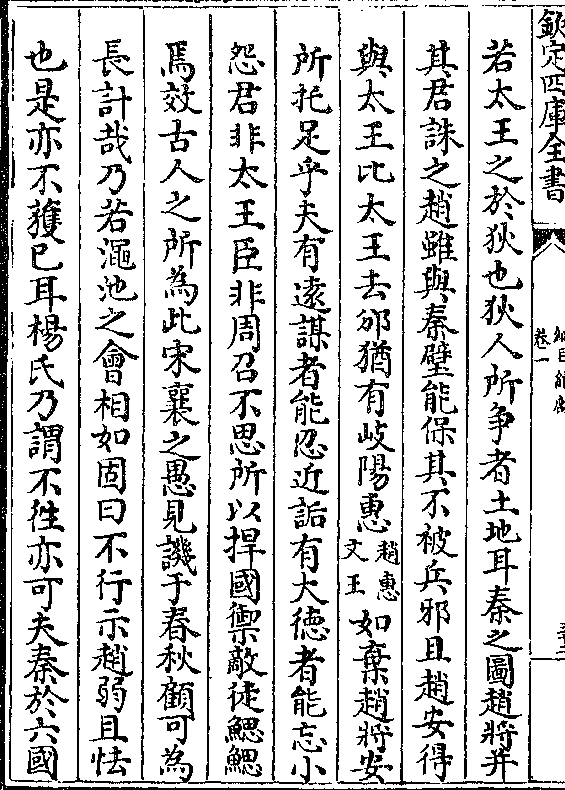 欽定四庫全書
卷一
若太王之於狄也狄人所爭者土地耳秦之圖趙將并
其君誅之趙雖與秦璧能保其不被兵邪且趙安得
與太王比太王去邠猶有岐陽惠趙惠文王如棄趙將安
所托足乎夫有遠謀者能忍近詬有大德者能忘小
怨君非太王臣非周召不思所以捍國禦敵徒鰓鰓
焉效古人之所為此宋襄之愚見譏于春秋顧可為
長計哉乃若澠池之會相如固曰不行示趙弱且怯
也是亦不獲已耳楊氏乃謂不徃亦可夫秦於六國